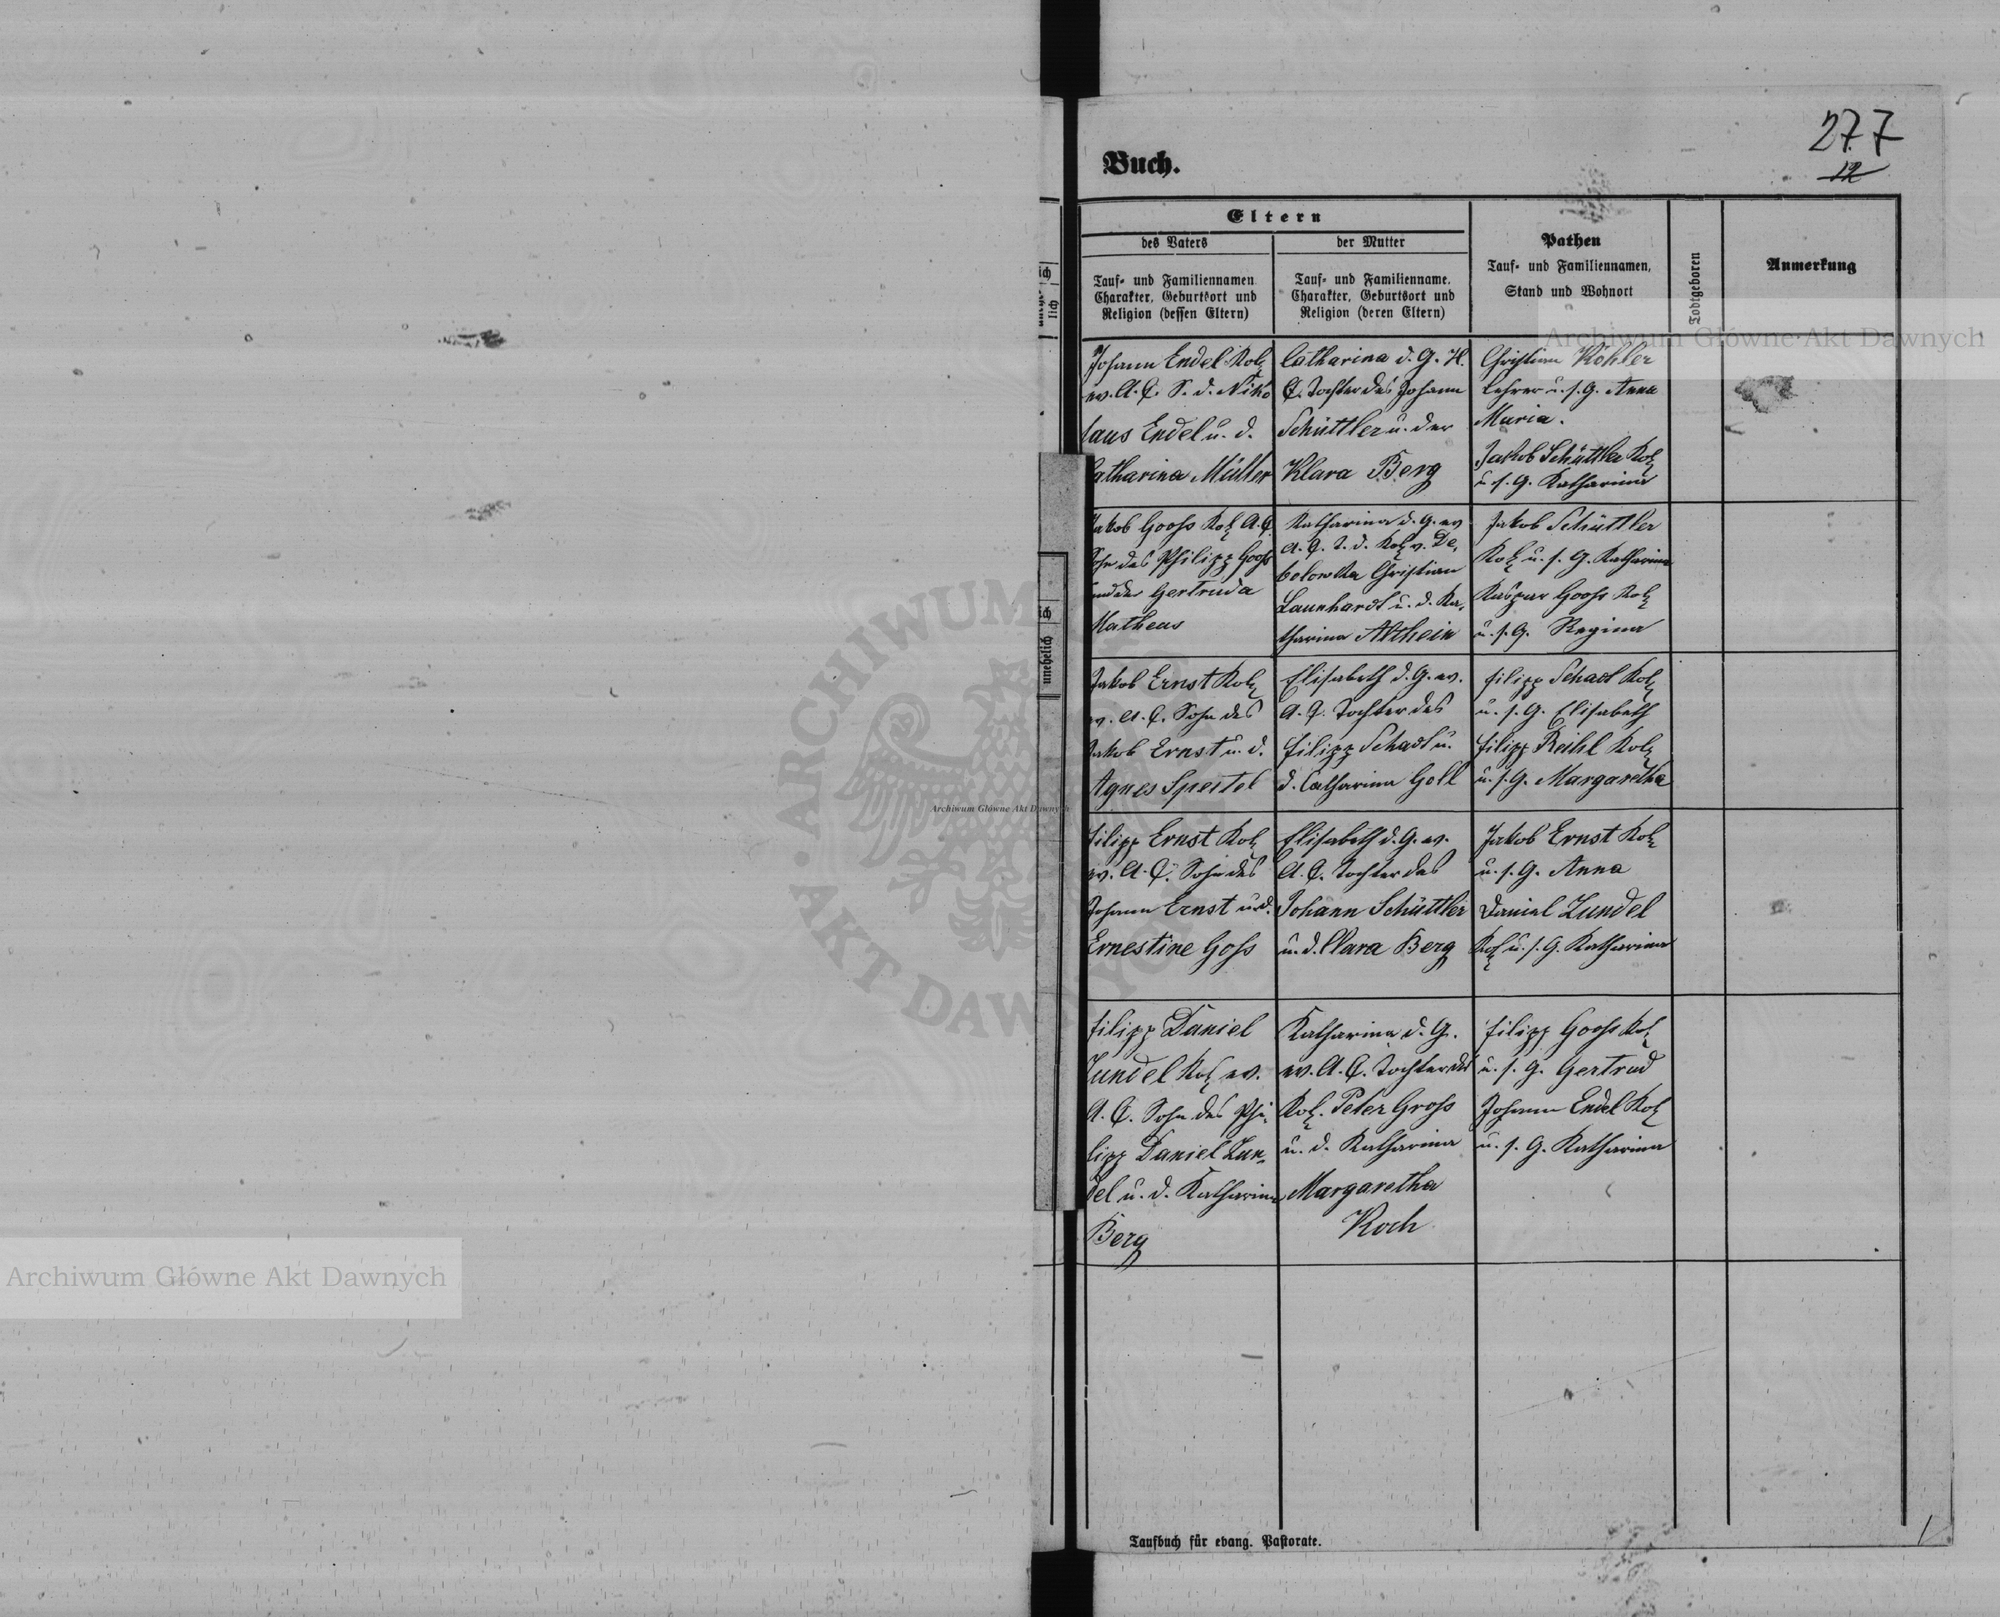 277
12
Buch.
Eltern
des Vaters
der Mutter
Tauf- und Familiennamen
Charakter, Geburtsort und
Religion (dessen Eltern)
Tauf- und Familienname,
Charakter, Geburtsort und
Religion (deren Eltern)
Pathen
Tauf- und Familiennamen,
Stand und Wohnort
Todtgeboren
Anmerkung
Johann Endel Kol.
ev. A. C. S. d. Niko
laus Endel u. d.
Catharina Müller
Catharina d. G. H.
C. Tochter des Johann
Schüttler u. der
Klara Berg
Christian Köhler
Lehrer u. s. G. Anna
Maria.
Jakob Schüttler Kol.
u. s. G. Katharina
Jakob Gooss Kol. A. C.
Sohn des Philipp Gooss
und der Gertruda
Matheus
Katharina d. G. ev
A. C. T. d. Kol. v. De,
bolowka Christian
Launhardt u. d. Ka,
tharina Althein
Jakob Schüttler
Kol. u. s. G. Katharina
Kaspar Gooss Kol.
u. s. G. Regina
Jakob Ernst Kol.
ev. A. C. Sohn des
Jakob Ernst u. d.
Agnes Speitel
Elisabeth d. G. ev.
A. C. Tochter des
Filipp Schadl u.
d. Catharina Goll
Filipp Schadl Kol.
u. s. G. Elisabeth
Filipp Reihl Kol.
u. s. G. Margaretha
Filipp Ernst Kol.
ev. A. C. Sohn des
Johann Ernst u. d.
Ernestine Goss
Elisabeth d. G. ev.
A. C. Tochter des
Johann Schüttler
u. d. Clara Berg
Jakob Ernst Kol.
u. s. G. Anna
Daniel Zundel
Kol. u. s. G. Katharina
Filipp Daniel
Zundel Kol. ev.
A. C. Sohn des Phi-
lipp Daniel Zun-
del u. d. Katharina
Berg
Katharina d. G.
ev. A. C. Tochter des
Kol. Peter Gross
u. d. Katharina
Margaretha
Koch
Filipp Gooss Kol.
u. s. G. Gertrud
Johann Endel Kol.
u. s. G. Katharina
unehelich
Taufbuch für evang. Pastorate.
Archiwum Główne Akt Dawnych
Archiwum Główne Akt Dawnych
Archiwum Główne Akt Dawnych
ARCHIWUM
AKT DAWNYCH